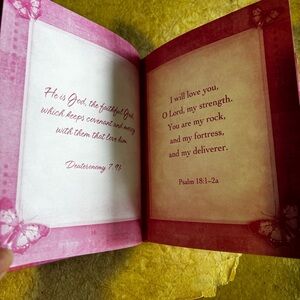 He is God, the faithful God,
which keeps covenant and mercy
with them that love him.
Deuteronomy 7:9a
I will love you,
O Lord, my strength.
You are my rock,
and my fortress,
and my deliverer.
Psalm 18:1–2a